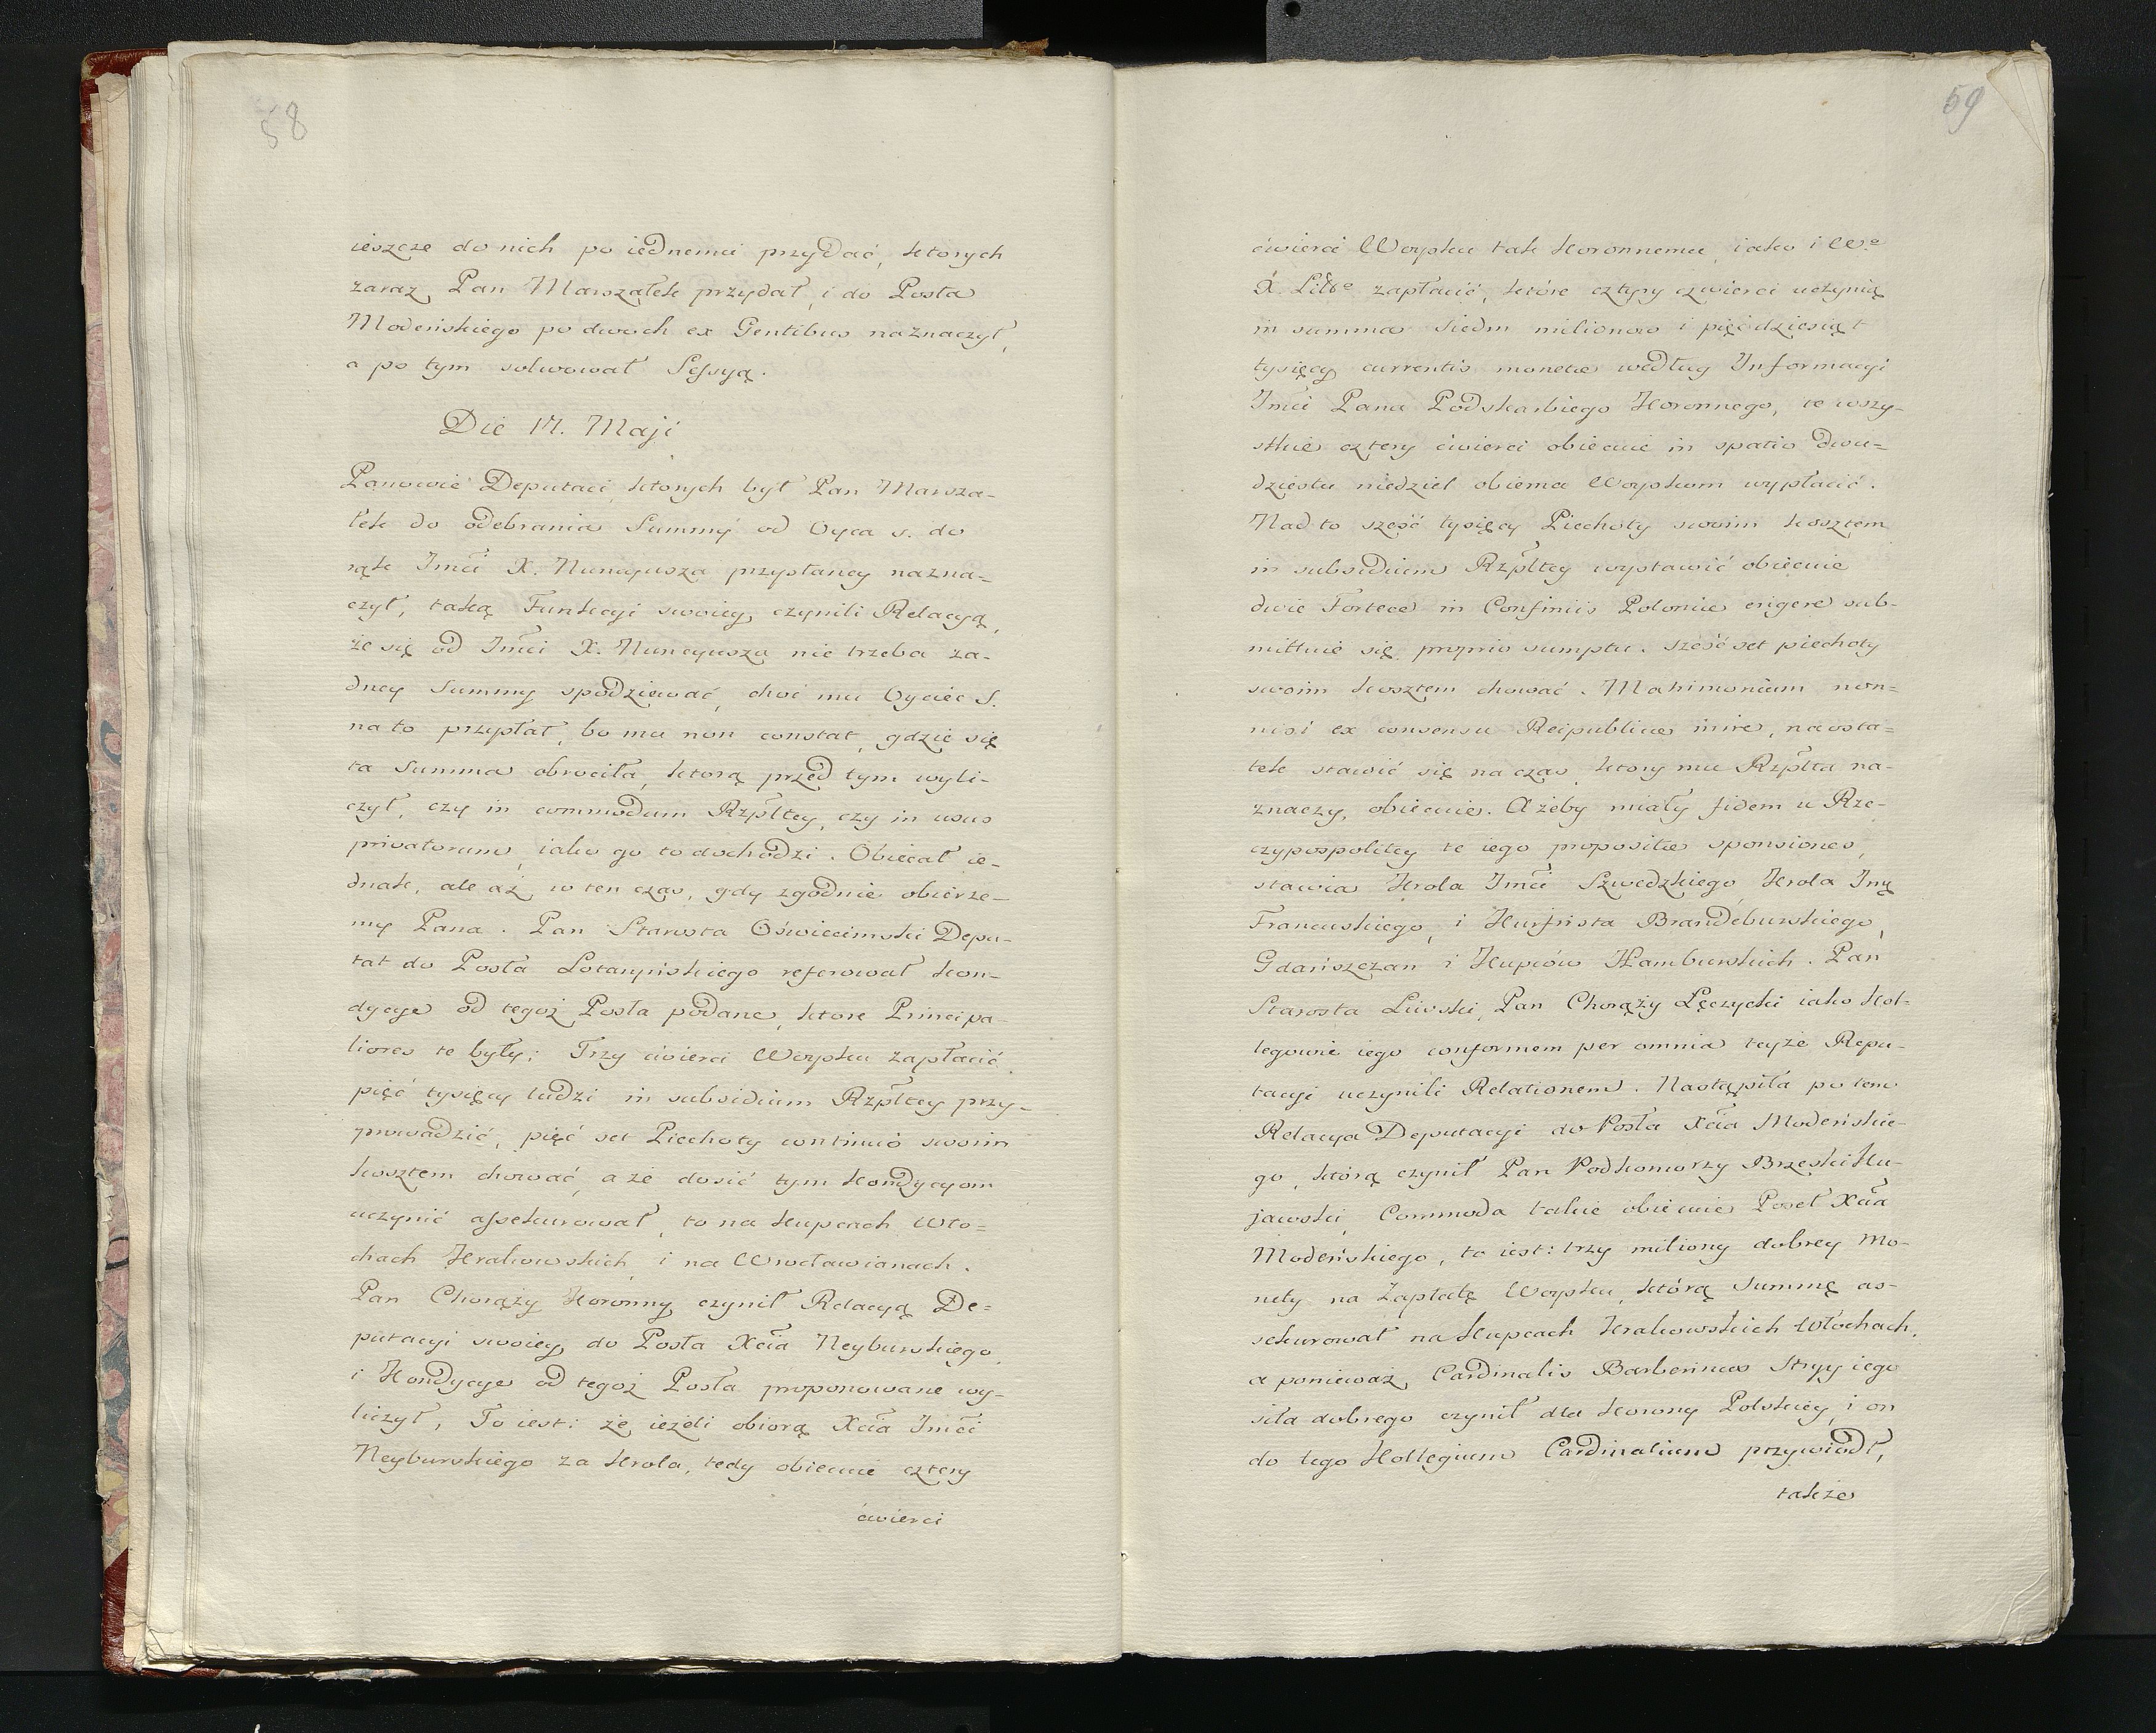 58
ieszcze do nich po iednemu przydać, ktorych
zaraz Pan Marszałek przydał, i do Posła
Modeńskiego po dwoch ex Gentibus naznaczył,
a po tym solwował Sessyą.
Die 17. Maji
Panowie Deputaci, ktorych był Pan Marsza-
łek do odebrania Summy od Oyca s. do
rąk Jmći X. Nuncyusza przysłaney nazna-
czył, taką Funkcyi swoiey czynili Relacyą,
że się od Jmći X. Nuncyusza nie trzeba ża-
dney Summy spodziewać, choć mu Oyciec S.
na to przysłał, bo mu non constat, gdzie się
ta Summa obrociła, ktorą przed tym wyli-
czył, czy in commodum Rzpltey, czy in usus
privatorum, iako go to dochodzi. Obiecał ie-
dnak, ale aż w ten czas, gdy zgodnie obierze-
my Pana. Pan Starosta Oświecimski Depu-
tat do Posła Lotaryńskiego referował kon-
dycye od tegoż Posła podane, ktore Principa-
liores te były: Trzy ćwierci Woysku zapłacić,
pięć tysięcy ludzi in subsidium Rzpltey przy-
prowadzić, pięć set Piechoty continuò swoim
kosztem chować, a że dosić tym Kondycyom
uczynić assekurował, to na Kupcach Wło-
chach Krakowskich, i na Wrocławianach.
Pan Chorąży Koronny czynił Relacyą De-
putacyi swoiey do Posła Xcia Neyburskiego,
i Kondycye od tegoż Posła proponowane wy-
liczył, To iest: że ieżeli obiorą Xcia Jmći
Neyburskiego za Krola, tedy obiecuie cztery
ćwierci
59
ćwierci Woysku tak Koronnemu, iako i W.
X. Litte zapłacić, które cztyry czwierci uczynią
in summa Siedm milionow i pięćdziesiąt
tysięcy currentis monetæ według Informacyi
Jmći Pana Podskarbiego Koronnego, te wszy-
stkie cztery ćwierci obiecuie in spatio dwu-
dziestu niedziel obiema Woyskom wypłacić.
Nad to sześć tysięcy Piechoty swoim kosztem
in subsidium Rzpltey wystawić obiecuie
dwie Fortece in Confiniis Poloniæ erigere sub-
mittuie się proprio sumptu. sześć set piechoty
swoim kosztem chować. Matrimonium non-
nisi ex consensu Reipublicæ inire, naosta-
tek stawić się na czas, ktory mu Rzplta na-
znaczy, obiecuie. Ażeby miały fidem u Rze-
czypospolitey te iego propositæ sponsiones,
stawia Krola Jmći Szwedzkiego, Krola Jmć
Francuskiego, i Kurfirsta Brandeburskiego,
Gdańszczan i Kupców Hamburskich. Pan
Starosta Liwski, Pan Chorąży Łęczycki iako Kol-
legowie iego conformem per omnia teyże Depu-
tacyi uczynili Relationem. Nastąpiła po tem
Relacya Deputacyi do Posła Xcia Modeńskie-
go, którą czynił Pan Podkomorzy Brzeski Ku-
jawski, Commoda takie obiecuie Poseł Xcia
Modeńskiego, to iest: trzy miliony dobrey Mo-
nety na Zapłatę Woysku, którą Summę as-
sekurował na Kupcach Krakowskich Włochach,
a ponieważ Cardinalis Barberinus Stryy iego
siła dobrego czynił dla Korony Polskiey, i on
do tego Kollegium Cardinalium przywiodł,
także